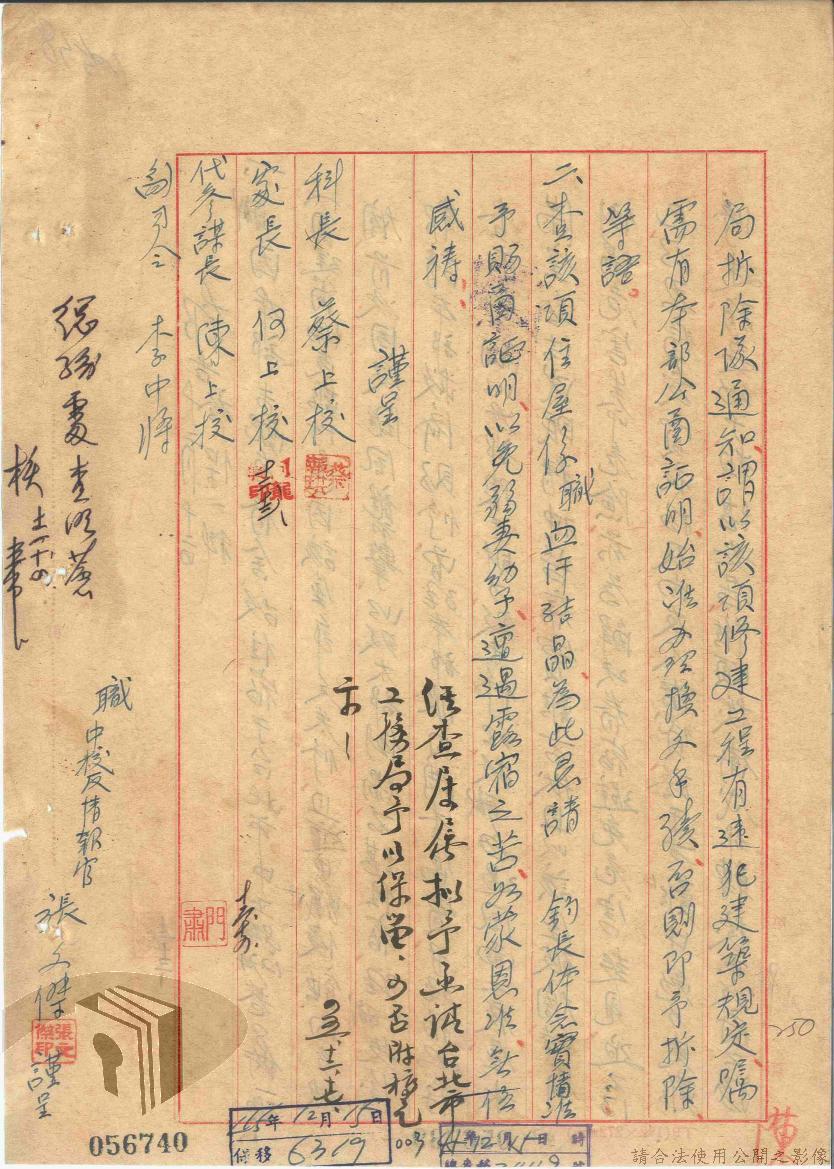 局拆除隊通知謂以該項修建工程有違犯建築規定囑
需有本部公函証明始准办理換文手續否則即予拆除
等語
二查該項住屋係職血汗結晶為此懇請 鈞長体念實情准
予賜函証明以免弱妻幼子遭遇露宿之苦如蒙恩准無任
感禱
謹呈
科長 蔡上校
處長 何上校
代參謀長 陳上校
副司令 李中將
職 中校反情報官 張文傑 謹呈
張文傑印
經查屬實擬予函請台北市
工務局予以保留可否敬核
示
門肅
12月15日
6319
056740
250
請合法使用公開之影像